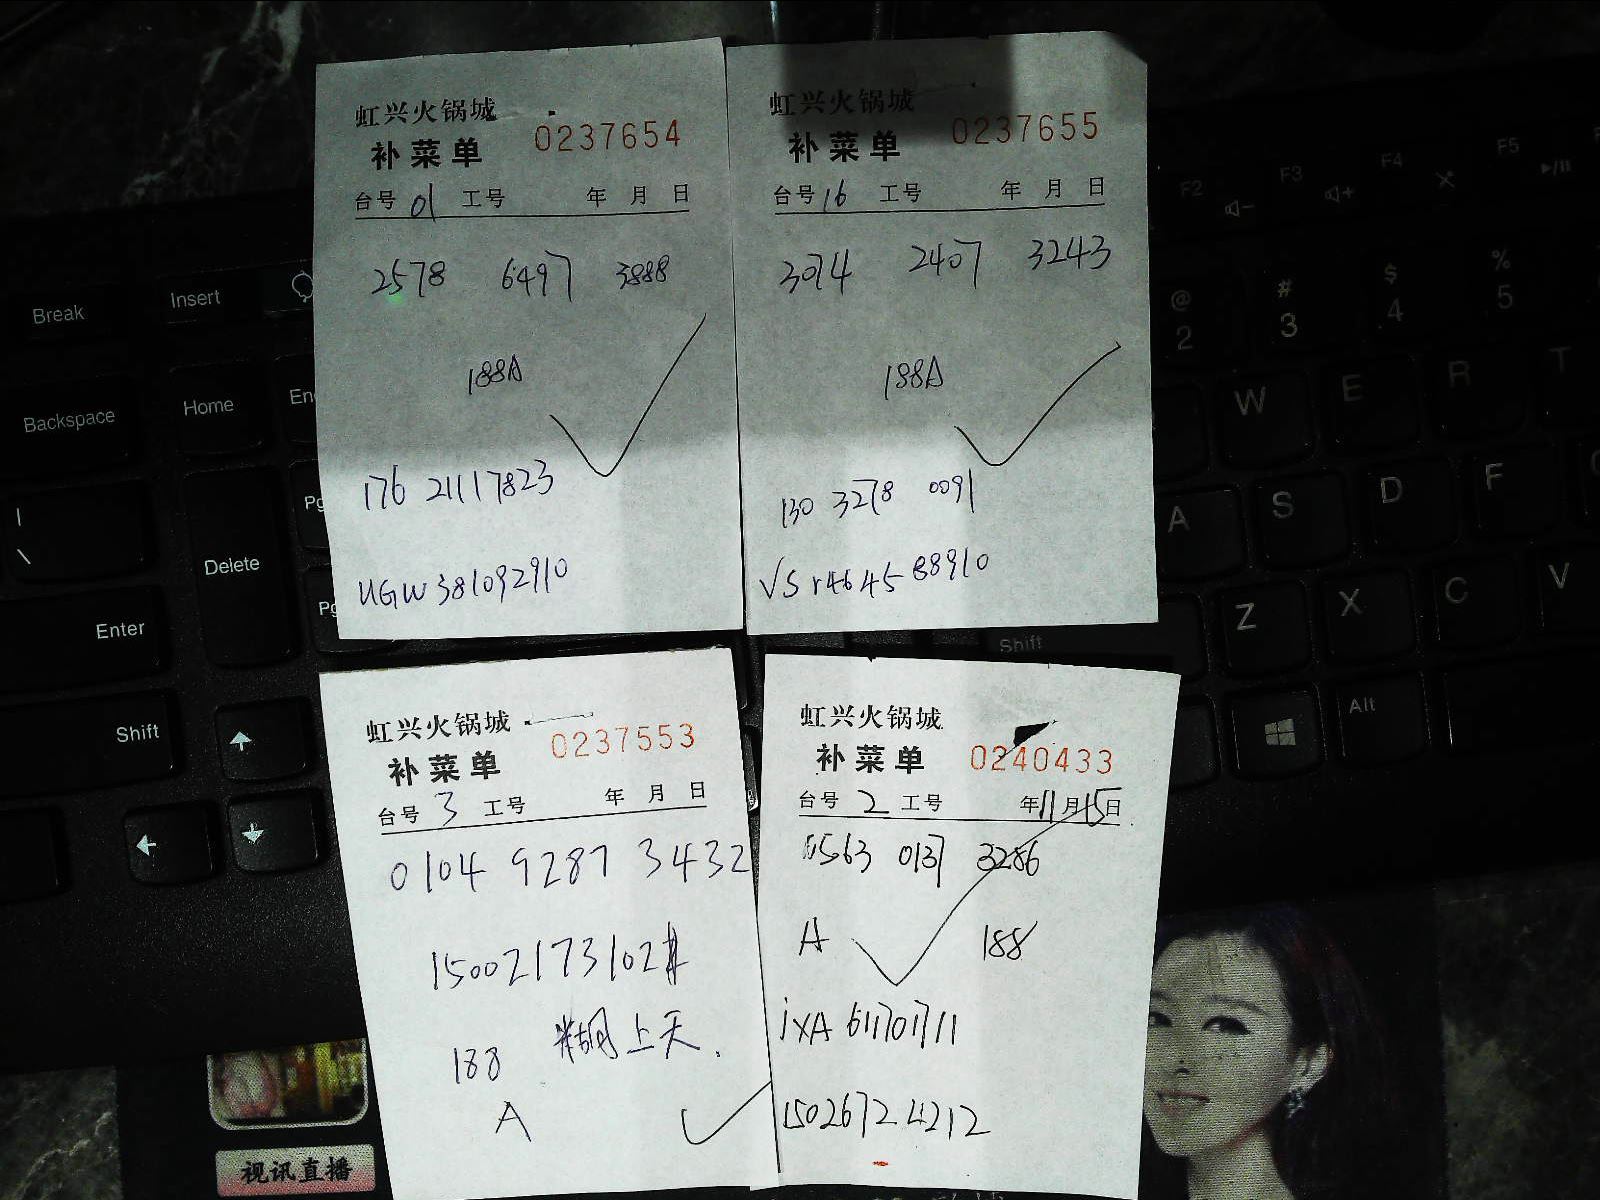 虹兴火锅城
补菜单 0237654
台号 01 工号 年 月 日
2578 6497 3888
188A
176 21117823
UGW381092910
虹兴火锅城
补菜单 0237655
台号 16 工号 年 月 日
3074 2407 3243
188A
130 3278 0091
VSr464588910
虹兴火锅城
补菜单 0237553
台号 3 工号 年 月 日
0104 9287 3432
15002173102
188 糊上天.
A
虹兴火锅城
补菜单 0240433
台号 2 工号 年11月15日
6563 0137 3286
A 188
ixA 611701711
15026724212
Break
Insert
Backspace
Home
Delete
Enter
Shift
F2
F3
F4
F5
@
2
#
3
$
4
%
5
W
E
R
T
A
S
D
F
Shift
Z
X
C
V
Alt
视讯直播